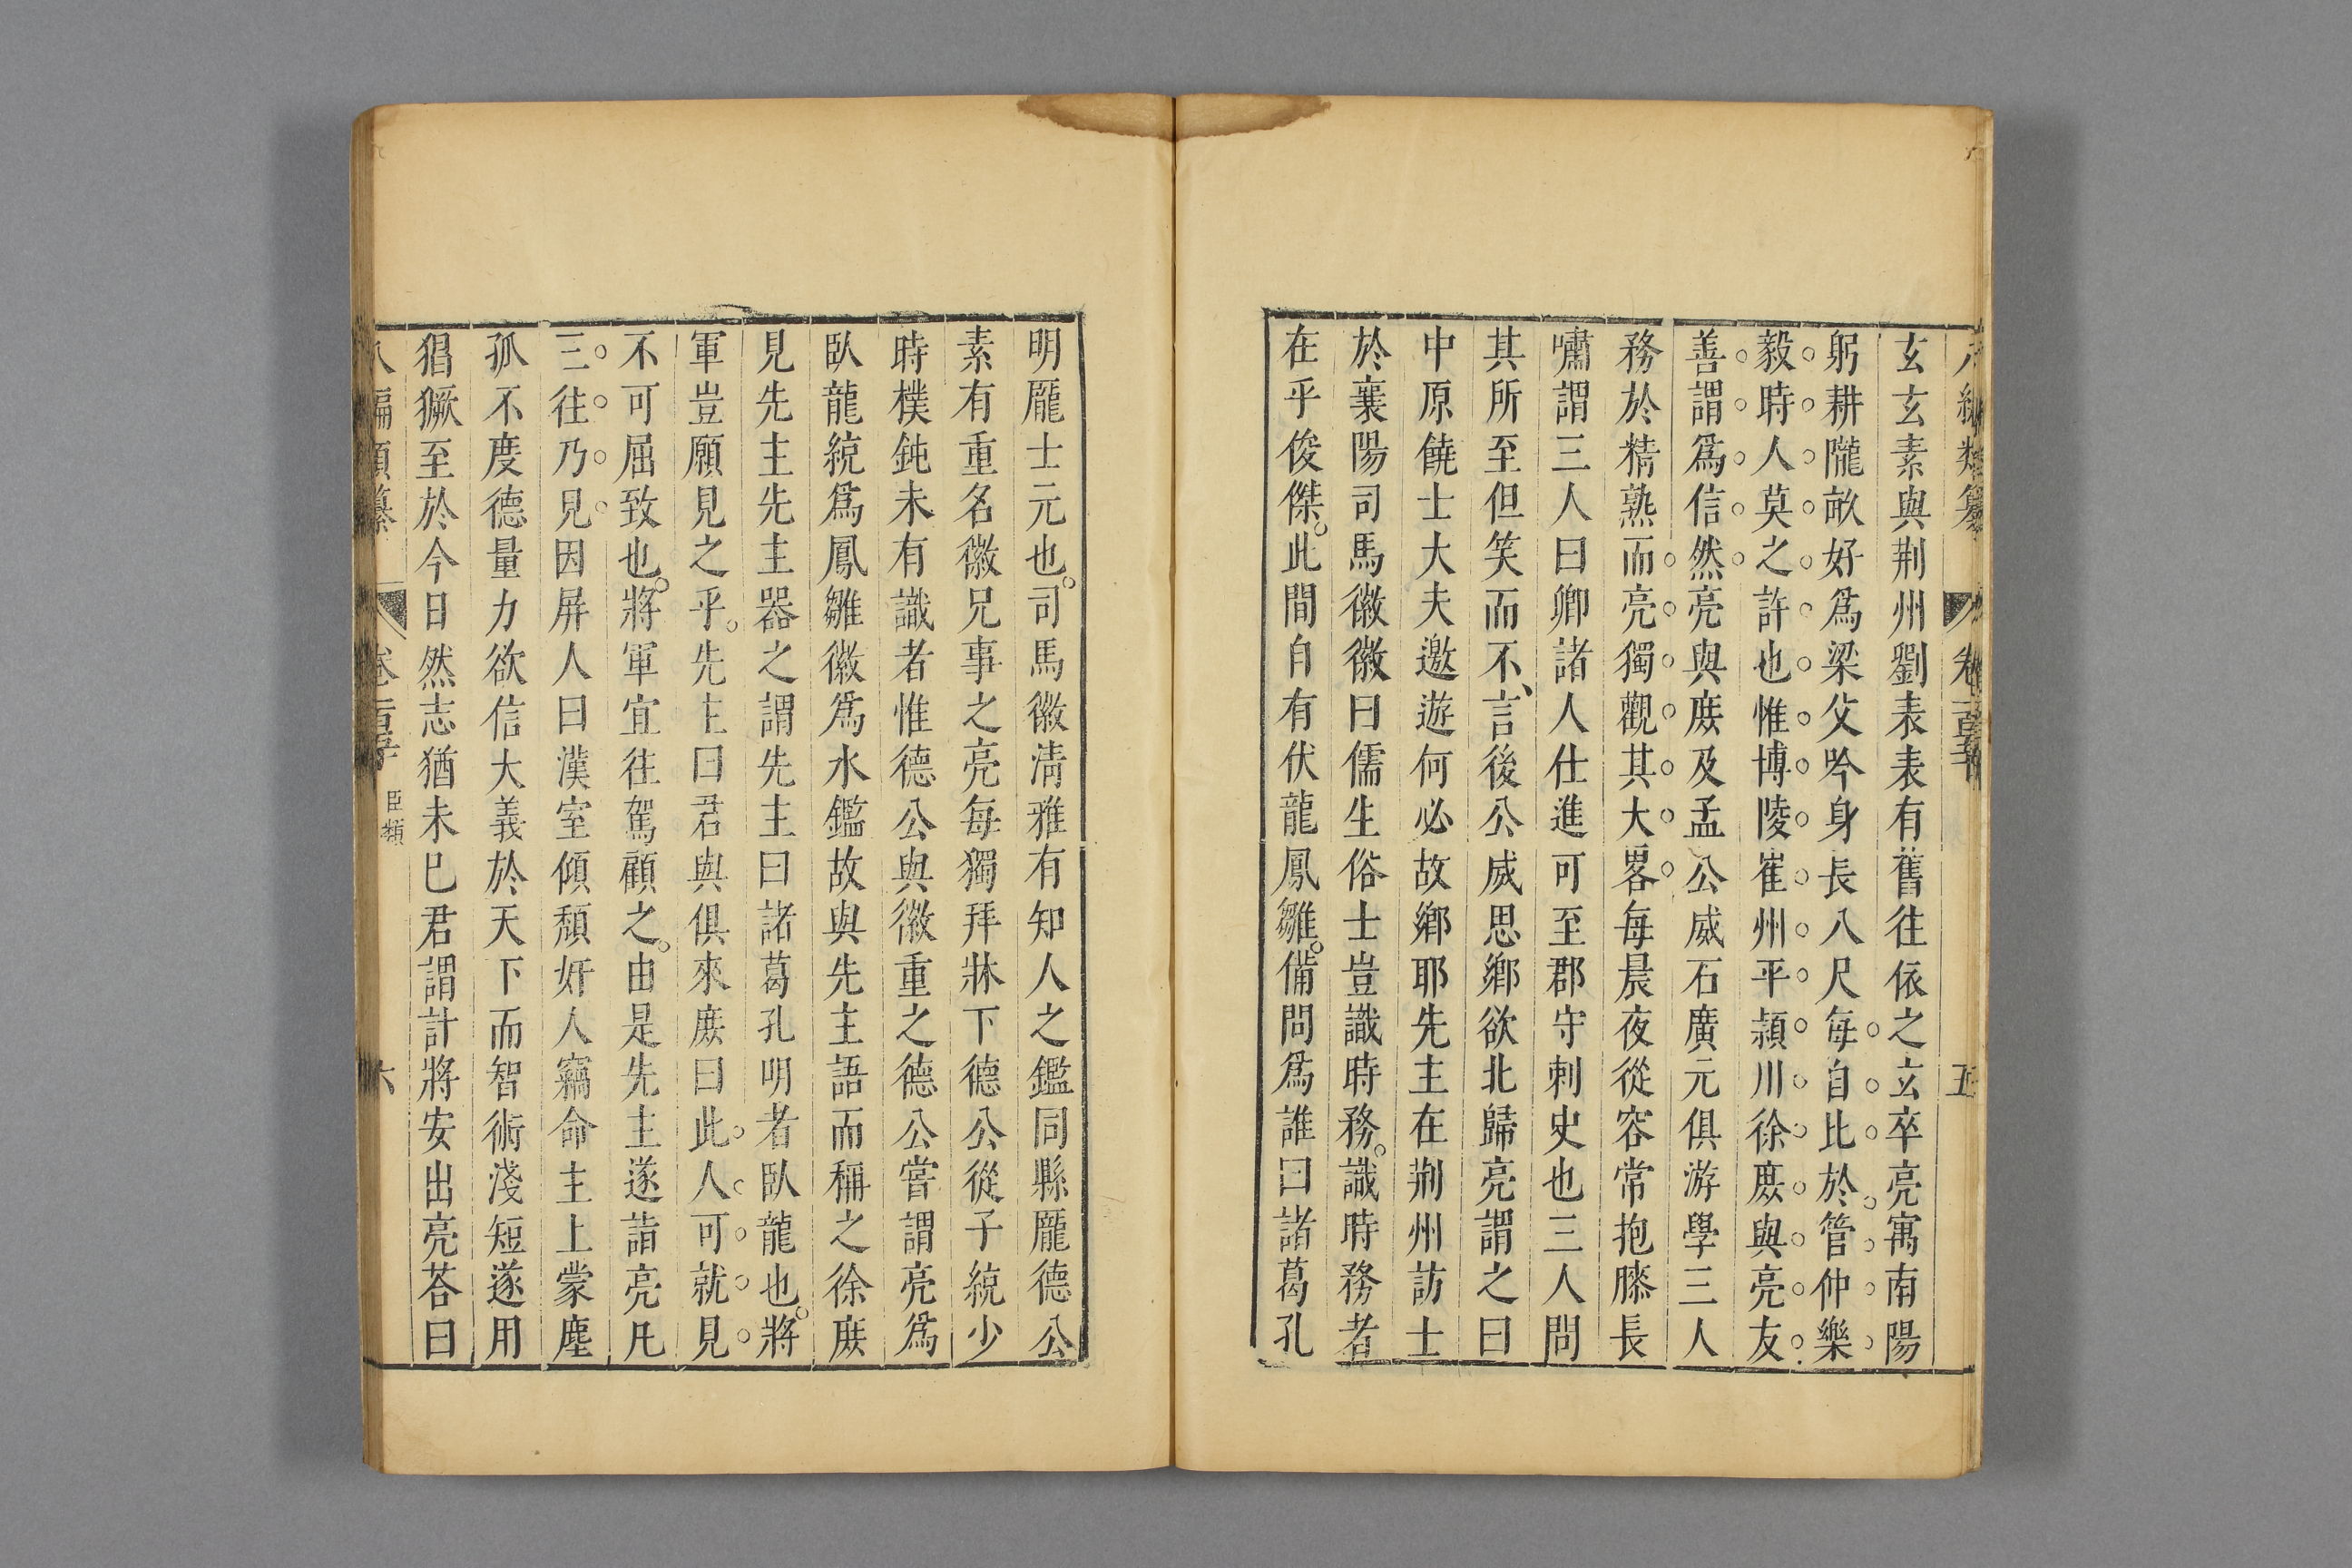 玄玄素與荆州劉表表有舊往依之玄卒亮寓南陽
躬耕隴畝好爲梁父吟身長八尺每自比於管仲樂
毅時人莫之許也惟博陵崔州平潁川徐庶與亮友
善謂爲信然亮與庶及孟公威石廣元俱游學三人
務於精熟而亮獨觀其大畧每晨夜從容常抱膝長
嘯謂三人曰卿諸人仕進可至郡守刺史也三人問
其所至但笑而不言後公威思鄉欲北歸亮謂之曰
中原饒士大夫遨遊何必故鄉耶先主在荆州訪士
於襄陽司馬徽徽曰儒生俗士豈識時務識時務者
在乎俊傑此間自有伏龍鳳雛備問爲誰曰諸葛孔
明龐士元也司馬徽清雅有知人之鑑同縣龐德公
素有重名徽兄事之亮每獨拜牀下德公從子統少
時樸鈍未有識者惟德公與徽重之德公嘗謂亮爲
臥龍統爲鳳雛徽爲水鑑故與先主語而稱之徐庶
見先主先主器之謂先主曰諸葛孔明者臥龍也將
軍豈願見之乎先主曰君與俱來庶曰此人可就見
不可屈致也將軍宜往駕顧之由是先主遂詣亮凡
三往乃見因屏人曰漢室傾頹奸人竊命主上蒙塵
孤不度德量力欲信大義於天下而智術淺短遂用
猖獗至於今日然志猶未巳君謂計將安出亮荅曰
臣類
六